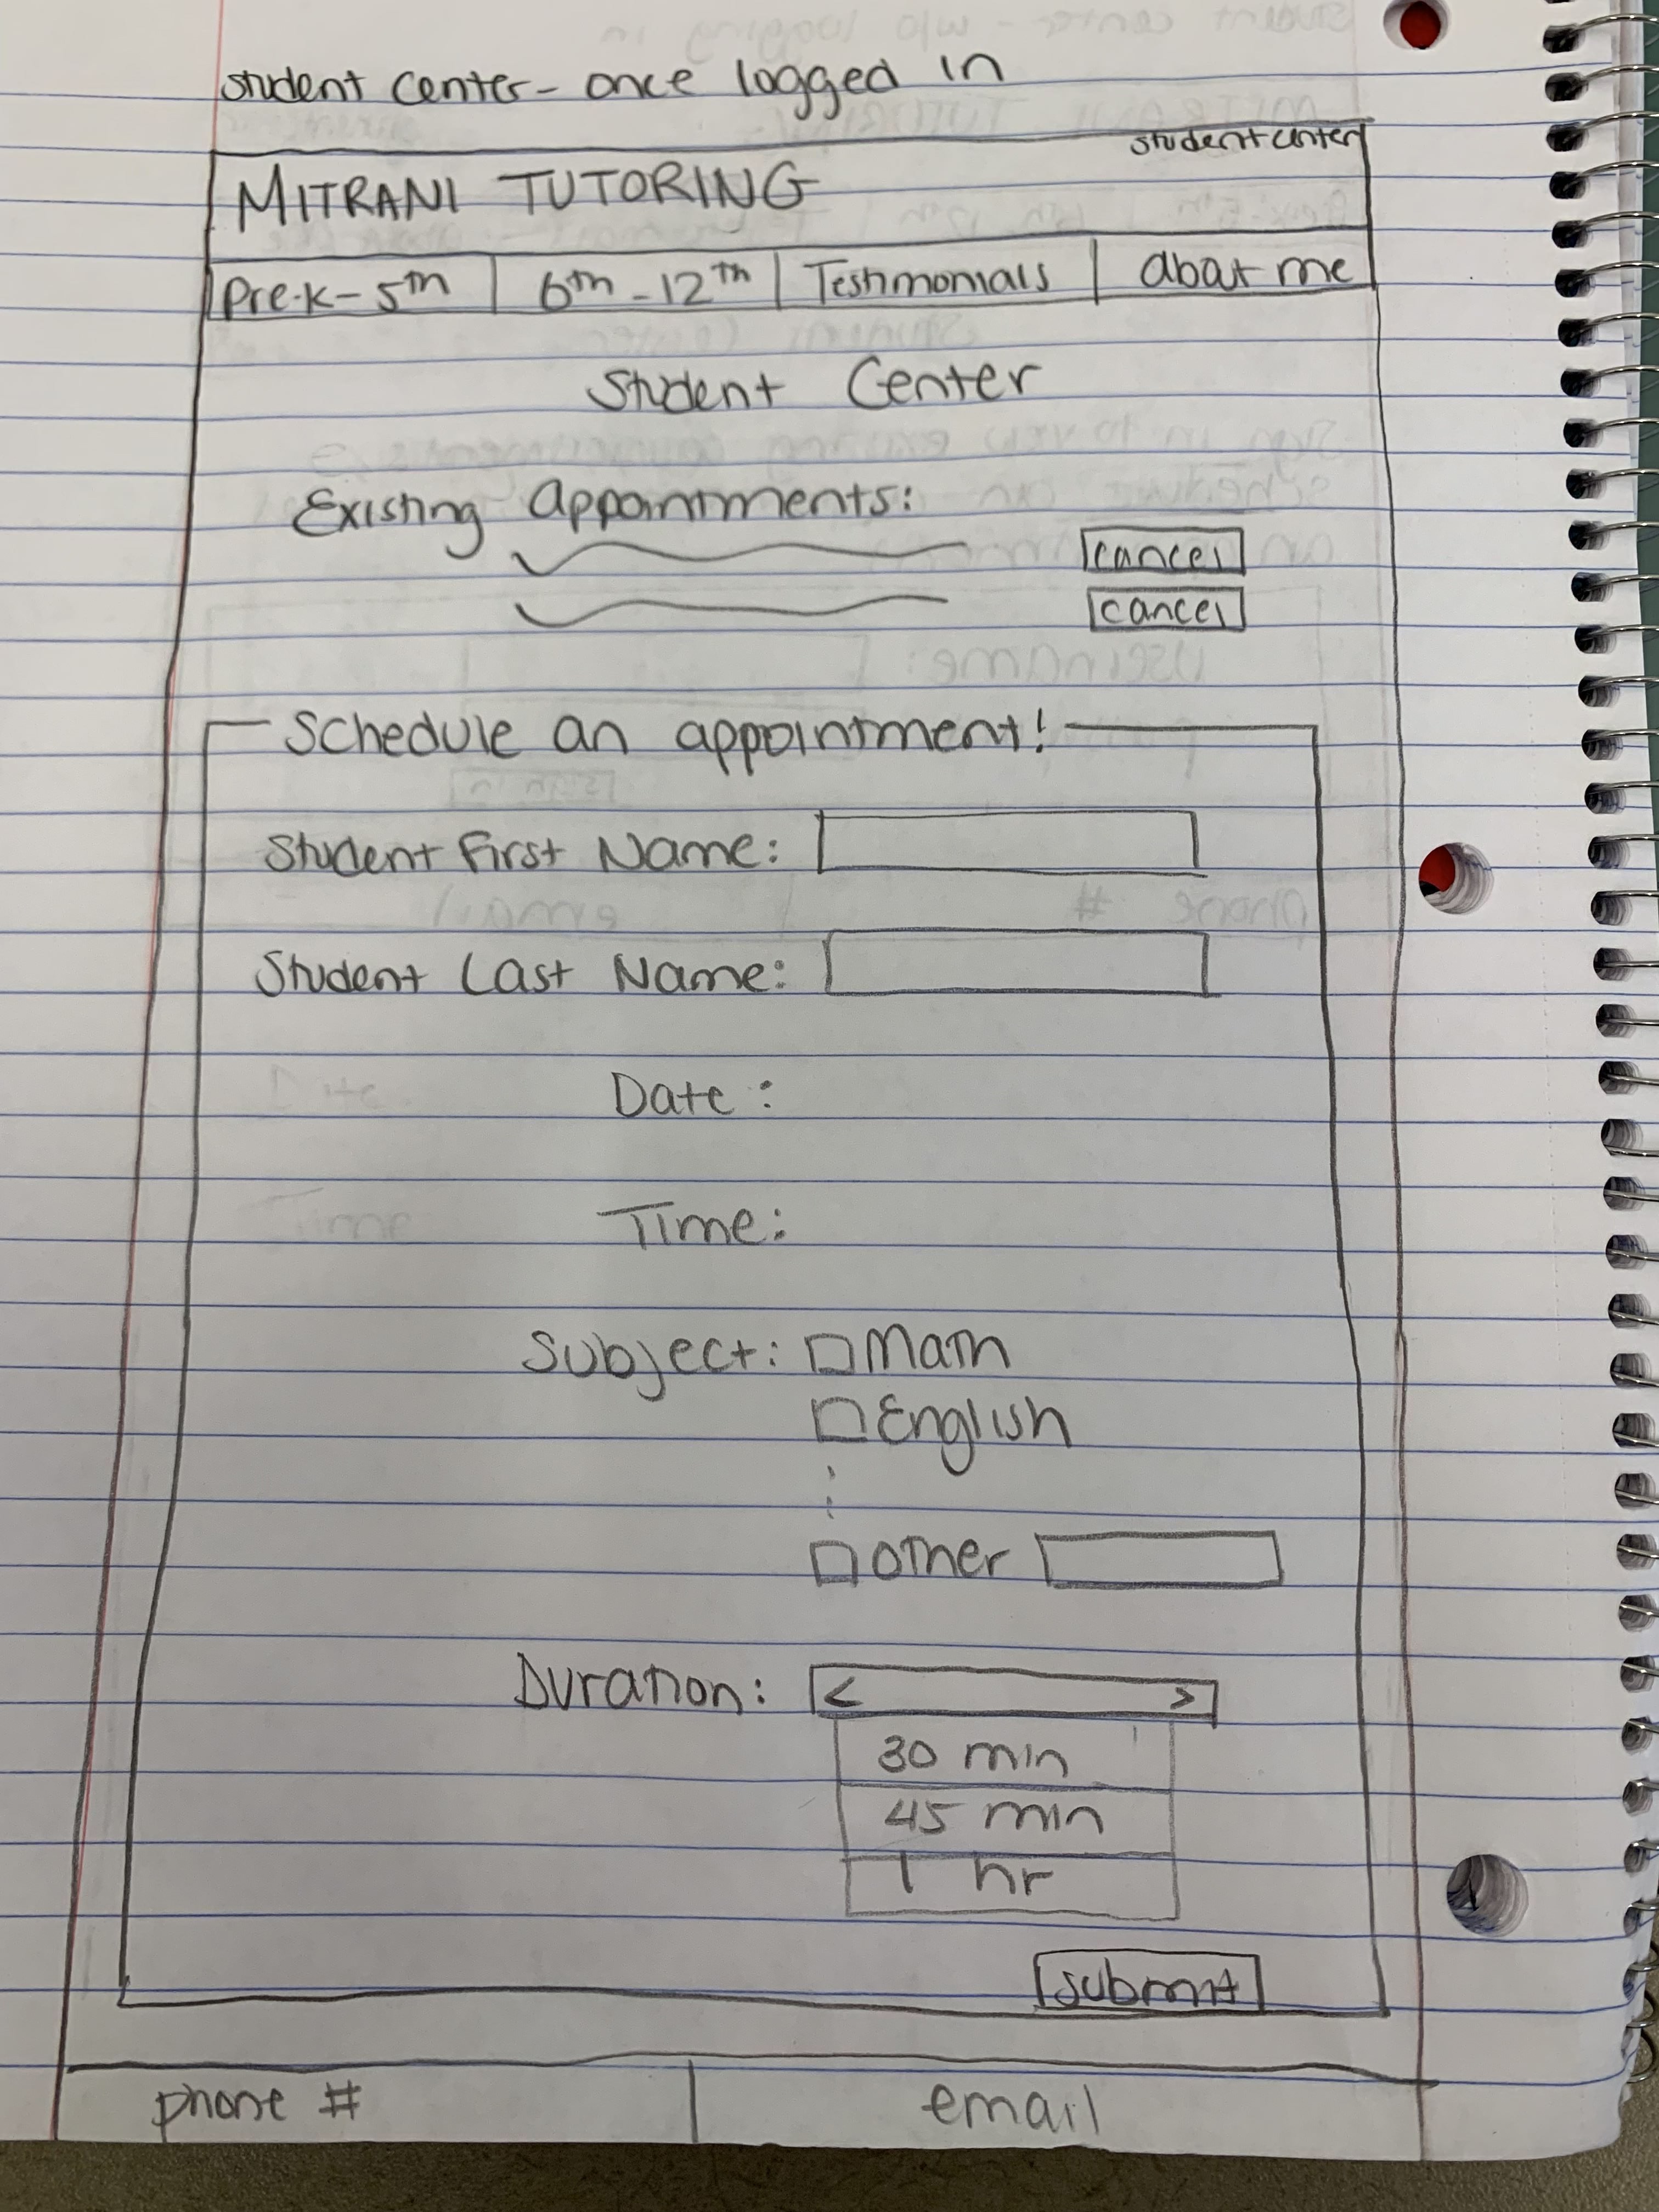 student center - once logged in
student center
MITRANI TUTORING
Pre-K - 5th 6th - 12th Testimonials about me
Student Center
Existing appointments:
cancel
cancel
Schedule an appointment!
Student First Name:
Student Last Name:
Date:
Time:
Subject: Math
English
other
Duration: < >
30 min
45 min
1 hr
submit
phone # email